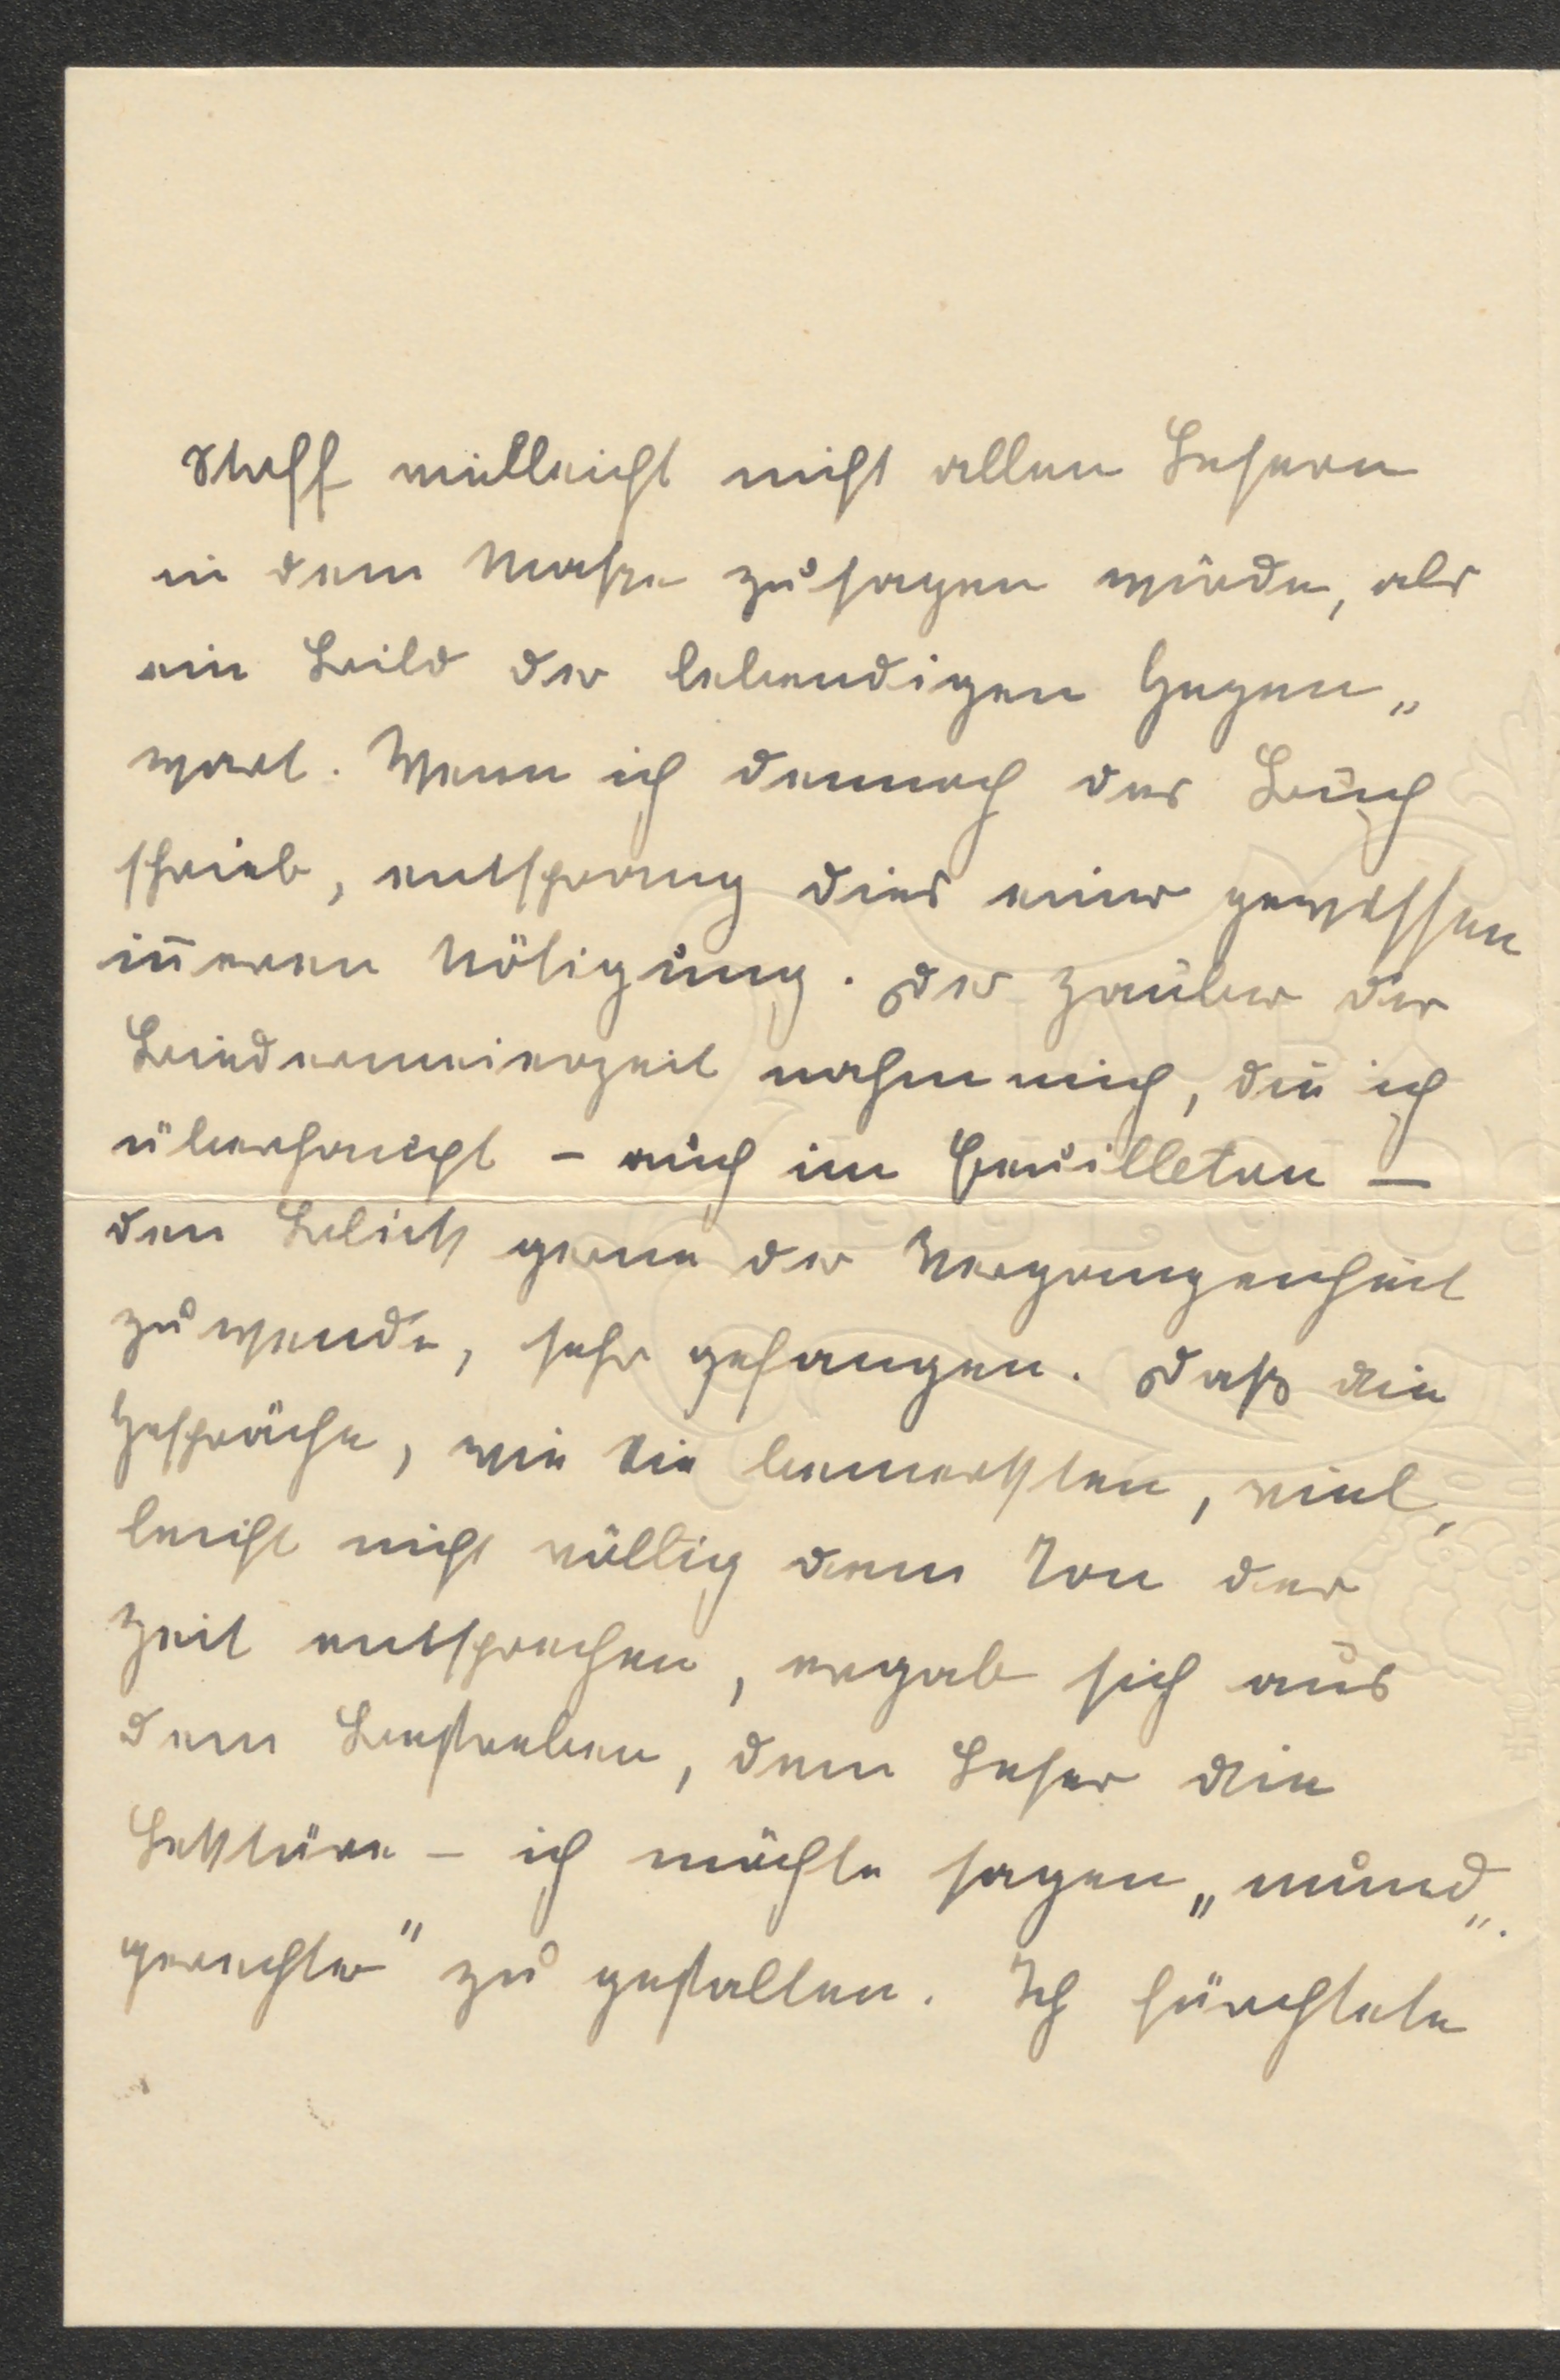 Stoff vielleicht nicht allen Lesern
in dem Maße zusagen würde, als
ein Bild der lebendigen Gegen„
wart. Wenn ich dennoch das Buch
schrieb, entsprang dies einer gewissen
in̄eren Nötigung. Der Zauber der
Biedermeierzeit nahm mich, die ich
überhaupt – auch im Feuilleton –
den Blick gerne der Vergangenheit
zuwende, sehr gefangen. Daß die
Gespräche, wie Sie bemerkten, viel„
leicht nicht völlig dem Ton der
Zeit entsprechen, ergab sich aus
dem Bestreben, dem Leser die
Lektüre – ich möchte sagen „mund„
gerechter" zu gestalten. Ich fürchtete